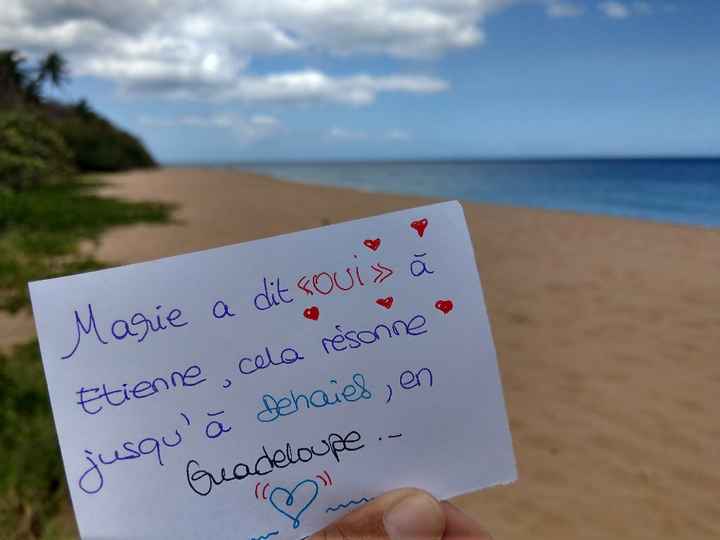 Marie a dit «OUI» à
Etienne, cela résonne
jusqu'à Dehaies, en
Guadeloupe...